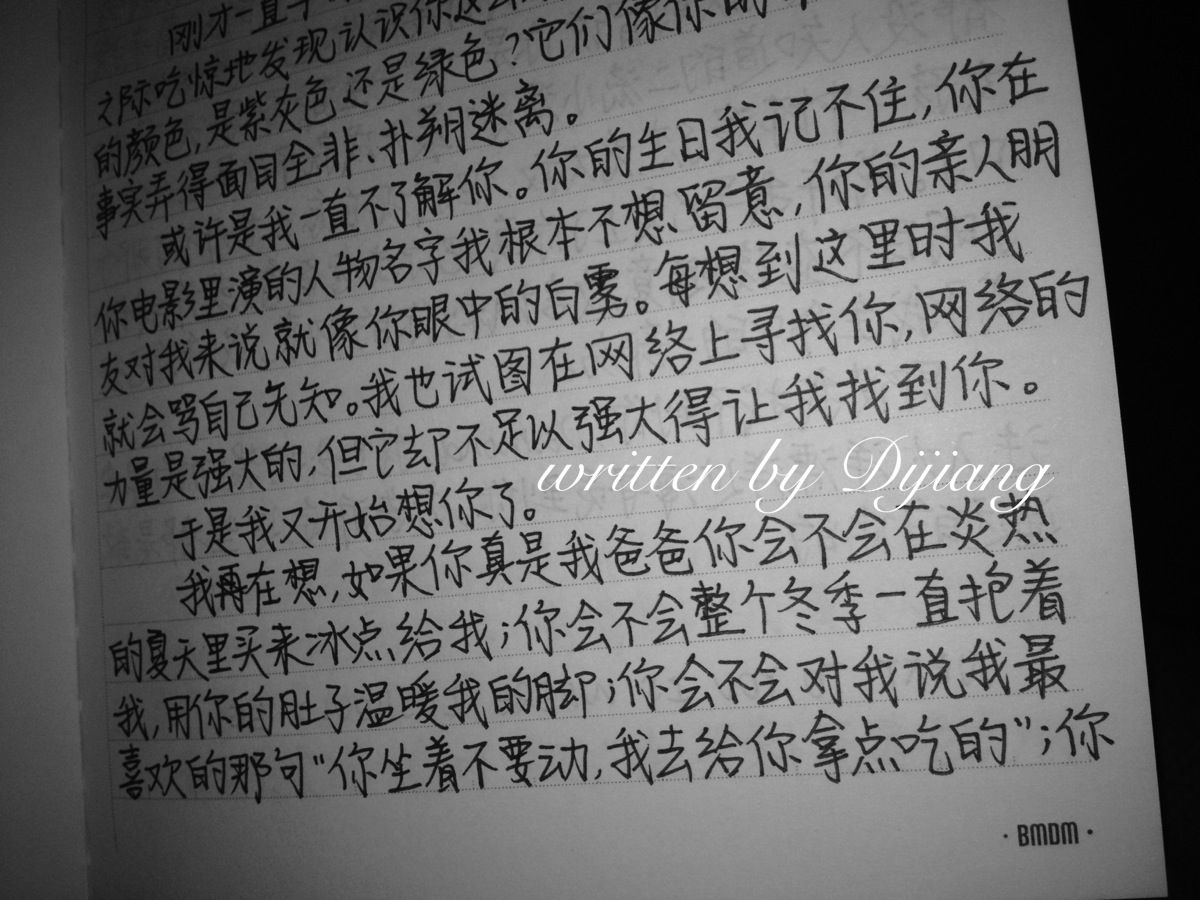 刚才一直
之际吃惊地发现认识你这
的颜色,是紫灰色还是绿色?它们像你的
事实弄得面目全非、扑朔迷离。
或许是我一直不了解你。你的生日我记不住,你在
你电影里演的人物名字我根本不想留意,你的亲人朋
友对我来说就像你眼中的白雾。每想到这里时我
就会骂自己无知。我也试图在网络上寻找你,网络的
力量是强大的,但它却不足以强大得让我找到你。
written by Dijiang
于是我又开始想你了。
我再在想,如果你真是我爸爸你会不会在炎热
的夏天里买来冰点给我;你会不会整个冬季一直抱着
我,用你的肚子温暖我的脚;你会不会对我说我最
喜欢的那句“你坐着不要动,我去给你拿点吃的”;你
· BMDM ·